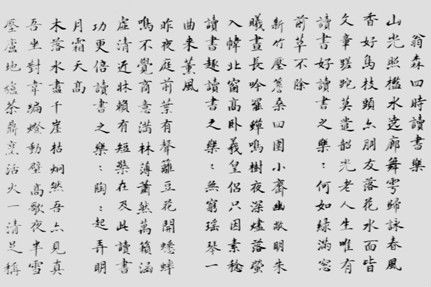 翁森四時讀書樂
山光照檻水遶廊舞雩歸詠春風
香好鳥枝頭亦朋友落花水面皆
文章蹉跎莫遣韶光老人生唯有
讀書好讀書之樂〻何如綠滿窗
前草不除
新竹壓簷桑四圍小齋幽敞明朱
曦晝長吟罷蟬鳴樹夜深燼落螢
入幃北窗高臥羲皇侶只因素稔
讀書趣讀書之樂〻無窮瑤琴一
曲來薰風
昨夜庭前葉有聲籬豆花開蟋蟀
鳴不覺商意滿林薄蕭然萬籟涵
虛清近牀賴有短檠在及此讀書
功更倍讀書之樂〻陶〻起弄明
月霜天高
木落水盡千崖枯炯然吾亦見真
吾坐對韋編燈動壁高歌夜半雪
壓廬地爐茶鼎烹活火一清足稱